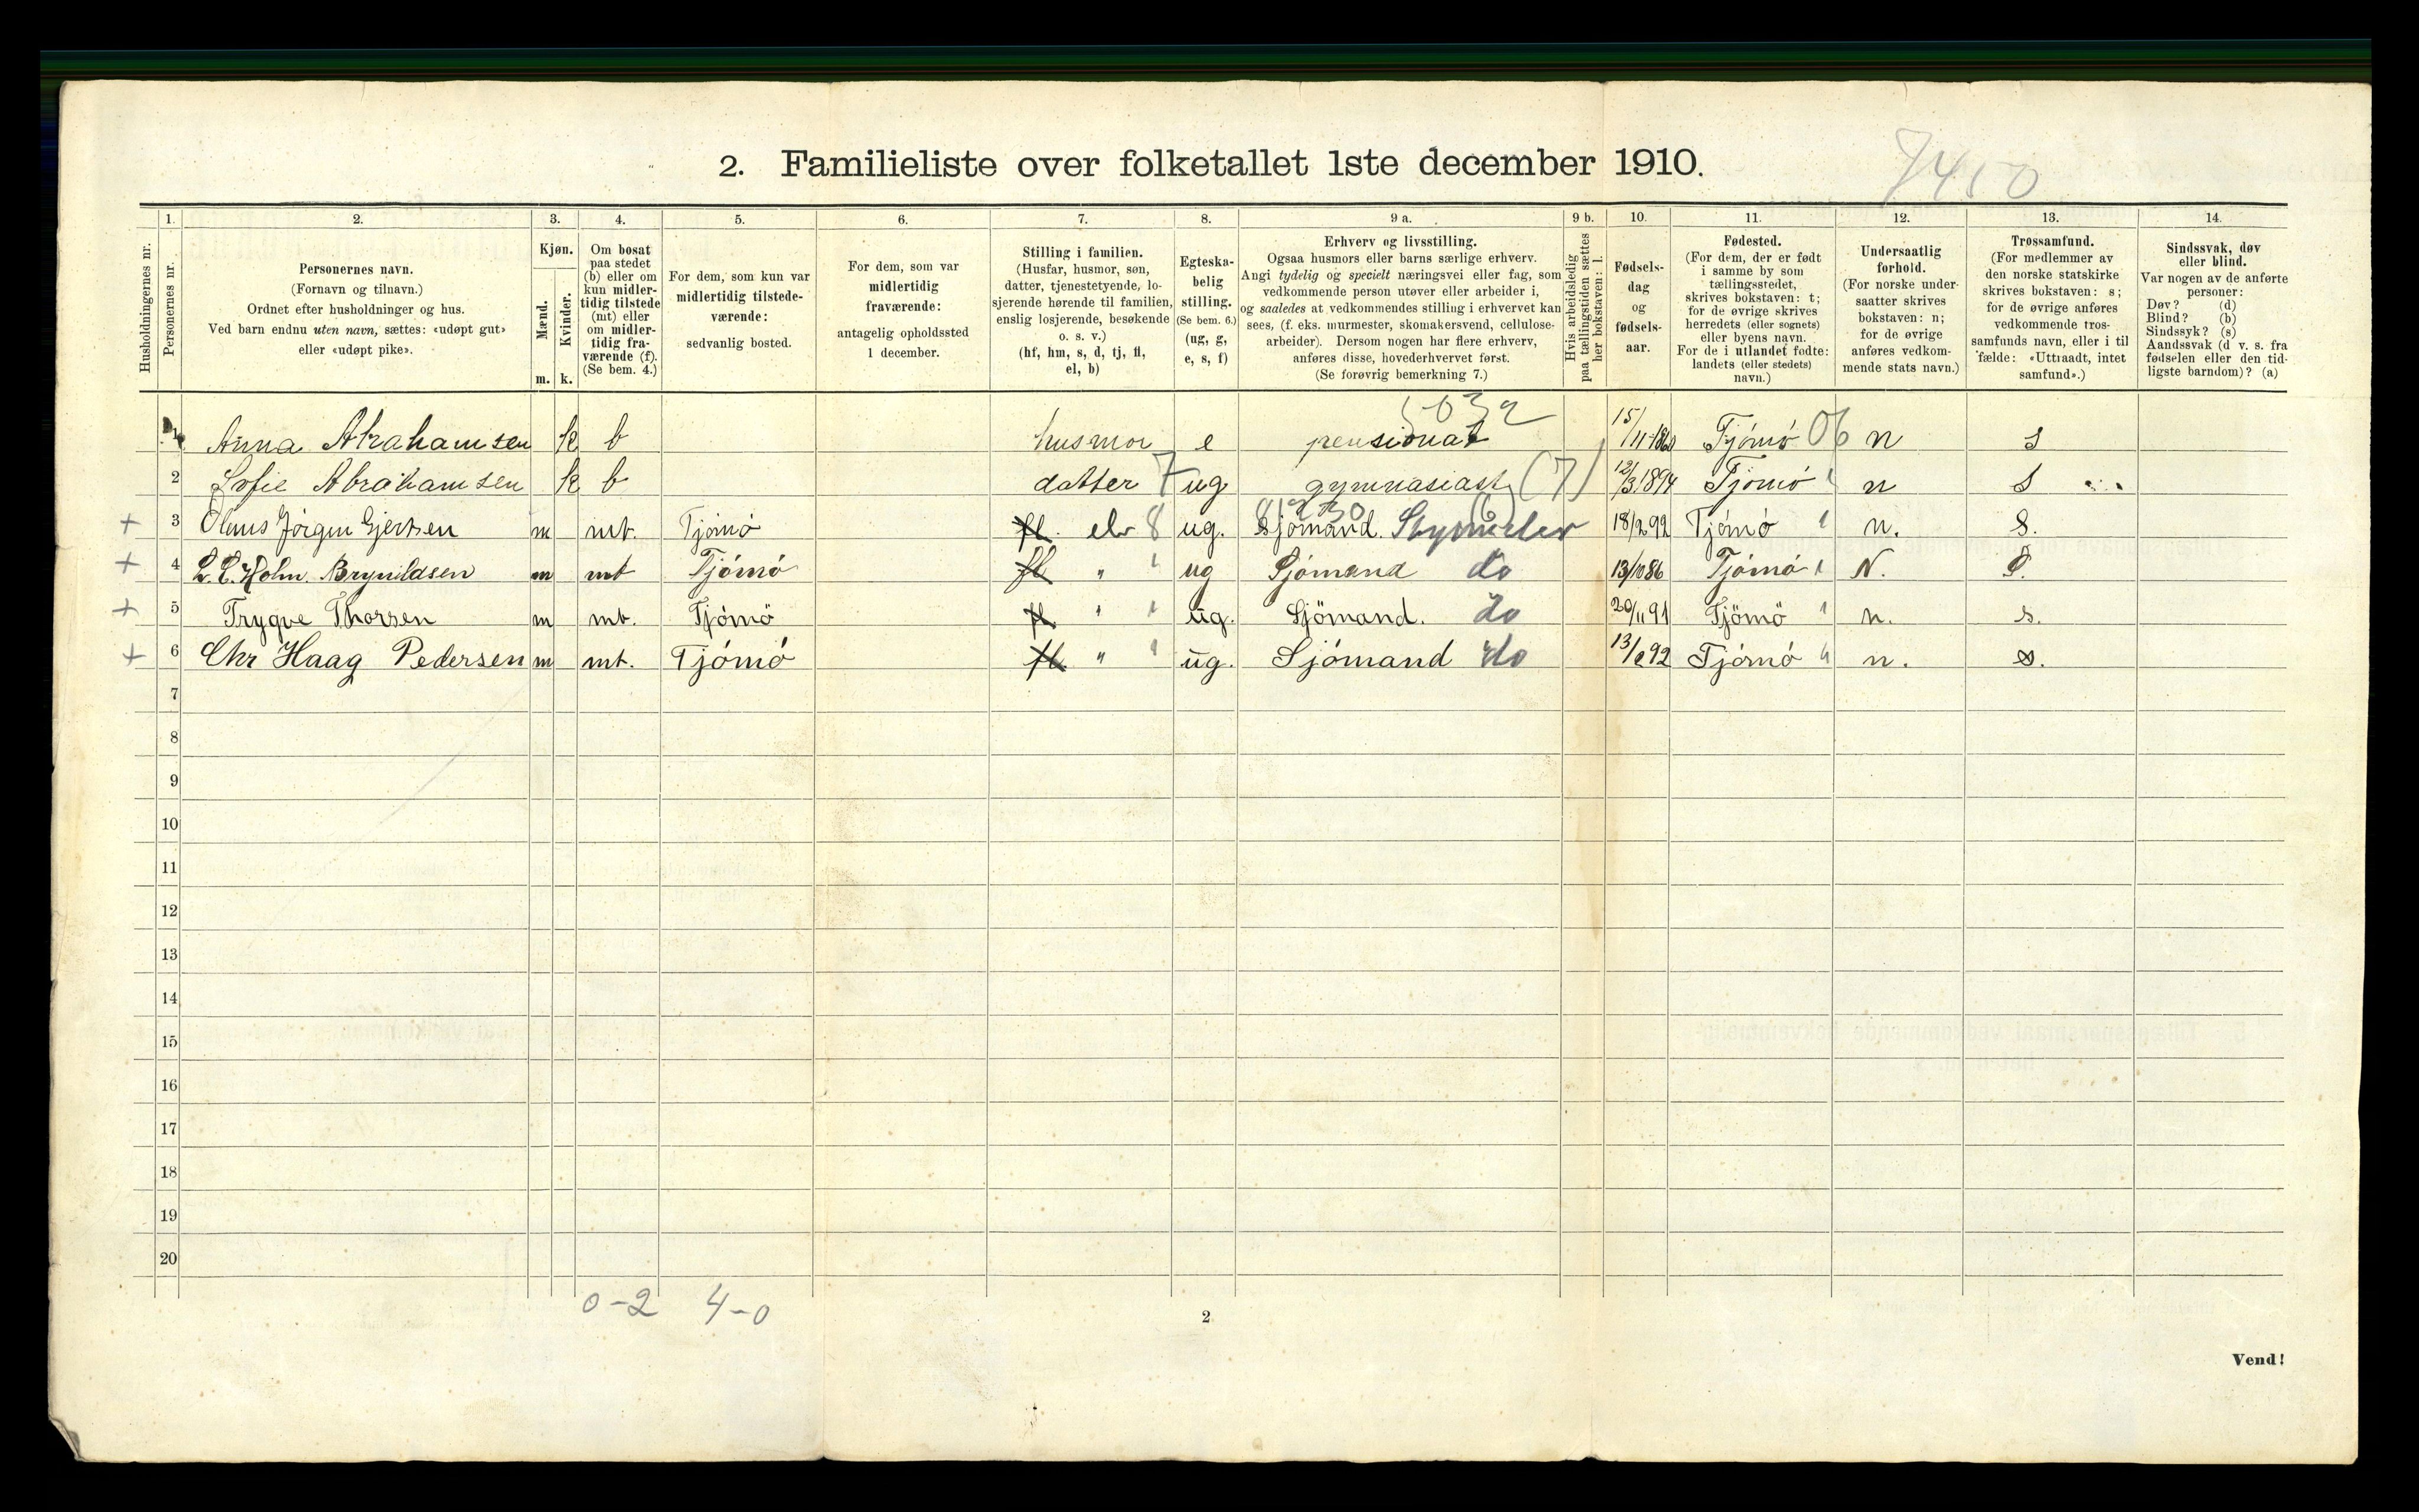 7450
2. Familieliste over folketallet 1ste december 1910.
1. 2. 3. 4. 5. 6. 7. 8. 9 a. 9 b. 10. 11. 12. 13. 14.
Husholdningernes nr.
Personernes nr.
Personernes navn.
(Fornavn og tilnavn.)
Ordnet efter husholdninger og hus.
Ved barn endnu uten navn, sættes: «udøpt gut»
eller «udøpt pike».
Kjøn.
Mænd.
Kvinder.
m. k.
Om bosat
paa stedet
(b) eller om
kun midler-
tidig tilstede
(mt) eller
om midler-
tidig fra-
værende (f).
(Se bem. 4.)
For dem, som kun var
midlertidig tilstede-
værende:
sedvanlig bosted.
For dem, som var
midlertidig
fraværende:
antagelig opholdssted
1 december.
Stilling i familien.
(Husfar, husmor, søn,
datter, tjenestetyende, lo-
sjerende hørende til familien,
enslig losjerende, besøkende
o. s. v.)
(hf, hm, s, d, tj, fl,
el, b)
Egteska-
belig
stilling.
(Se bem. 6.)
(ug, g,
e, s, f)
Erhverv og livsstilling.
Ogsaa husmors eller barns særlige erhverv.
Angi tydelig og specielt næringsvei eller fag, som
vedkommende person utøver eller arbeider i,
og saaledes at vedkommendes stilling i erhvervet kan
sees, (f. eks. murmester, skomakersvend, cellulose-
arbeider). Dersom nogen har flere erhverv,
anføres disse, hovederhvervet først.
(Se forøvrig bemerkning 7.)
Hvis arbeidsledig
paa tællingstiden sættes
her bokstaven: l.
Fødsels-
dag
og
fødsels-
aar.
Fødested.
(For dem, der er født
i samme by som
tællingsstedet,
skrives bokstaven: t;
for de øvrige skrives
herredets (eller sognets)
eller byens navn.
For de i utlandet fødte:
landets (eller stedets)
navn.)
Undersaatlig
forhold.
(For norske under-
saatter skrives
bokstaven: n;
for de øvrige
anføres vedkom-
mende stats navn.)
Trossamfund.
(For medlemmer av
den norske statskirke
skrives bokstaven: s;
for de øvrige anføres
vedkommende tros-
samfunds navn, eller i til
fælde: «Uttraadt, intet
samfund».)
Sindssvak, døv
eller blind.
Var nogen av de anførte
personer:
Døv? (d)
Blind? (b)
Sindssyk? (s)
Aandssvak (d v. s. fra
fødselen eller den tid-
ligste barndom)? (a)
5032
1 Anna Abrahamsen k b husmor e pensionat 15/11-1860 Tjömö 06 n s
2 Sofie Abrahamsen k b datter 7 ug gymnasiast (7) 12/3 1894 Tjömö n s
+ 3 Olaus Jörgen Gjertsen m mt. Tjömö fl. elv 8 ug. Sjömand. 18/2 92 Tjömö n. S.
+ 4 Holm Brynildsen m mt Tjömö fl " ug Sjömand do 13/10 86 Tjömö N. S.
+ 5 Trygve Thorsen m mt. Tjömö fl " ug. Sjömand. do 20/11 91 Tjömö n. s.
+ 6 Chr Haag Pedersen m mt. Tjömö fl " ug. Sjömand do Tjömö n. s.
7
8
9
10
11
12
13
14
15
16
17
18
19
20
0-2 4-0
2
Vend!